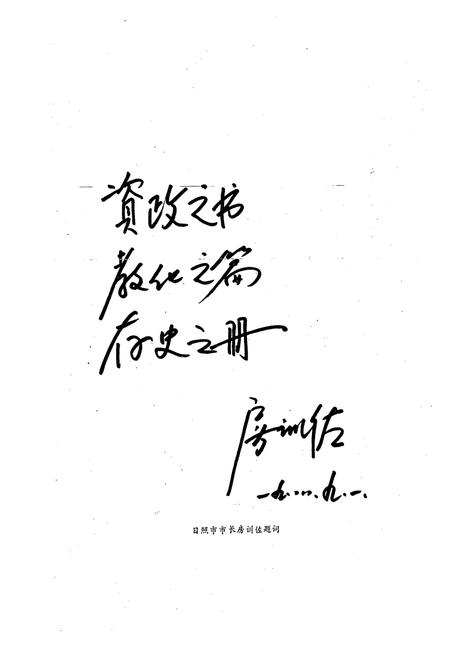 资政之书
教化之篇
存史之册
房训佐
一九八八.九.一.
日照市市长房训佐题词